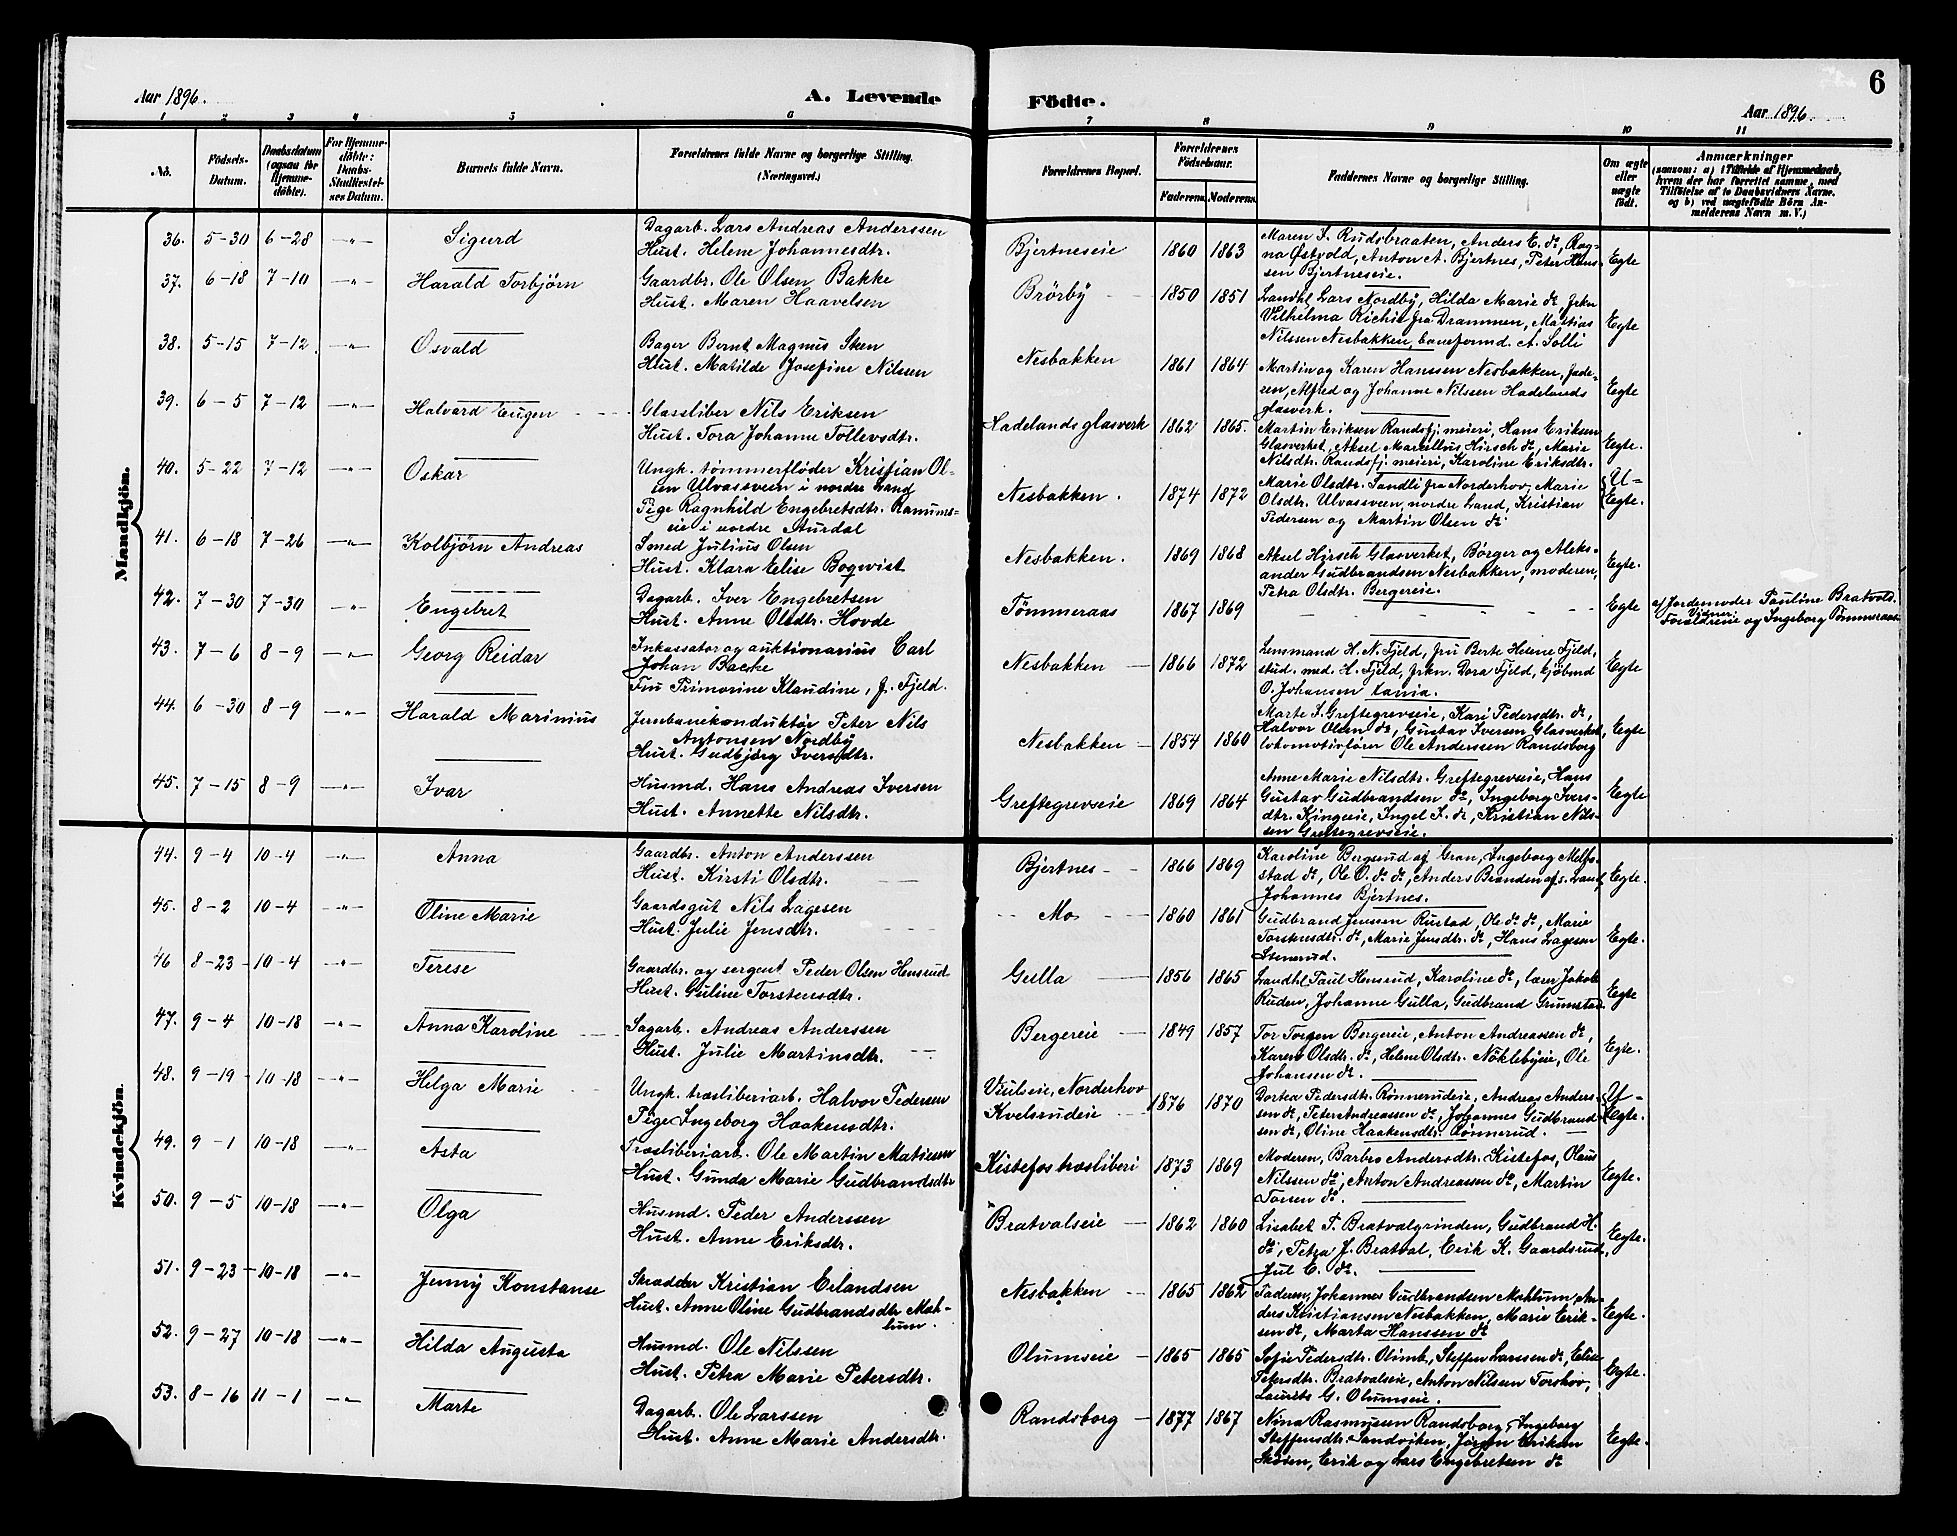 6
Aar 1896.
A. Levende
Födte.
Aar 1896.
1 2 3 4 5 6 7 8 9 10 11
No.
Födsels-
Datum.
Daabsdatum
(ogsaa for
Hjemme-
döbte).
For Hjemme-
döbte:
Daabs-
Stadfæstel-
ses Datum.
Barnets fulde Navn.
Forældrenes fulde Navne og borgerlige Stilling.
(Næringsvei.)
Forældrenes Bopæl.
Forældrenes
Födselsaar.
Faderens.
Moderens.
Faddernes Navne og borgerlige Stilling.
Om ægte
eller
uægte
födt.
Anmærkninger
(saasom: a) i Tilfælde af Hjemmedaab,
hvem der har forrettet samme, med
Tilföielse af to Daabsvidners Navne.
og b) ved uægtefödte Börn An-
melderens Navn m. V.)
Mandkjön.
36. 5-30 6-28 -"- Sigurd
Dagarb. Lars Andreas Anderssen
Hust. Helene Johannesdtr.
Bjertneseie 1860 1863
Maren S. Rudsbraaten, Anders E. do, Rag-
na Østvold, Anton A. Bjertnes, Peter Hans-
sen Bjertneseie.
Egte
37. 6-18 7-10 -"- Harald Torbjörn
Gaardbr. Ole Olsen Bakke
Hust. Maren Haavelsen
Brörby 1850 1851
Landhl. Lars Nordby, Hilda Marie do, frkn
Vilhelma Richie fra Drammen, Mathias
Nilssen Nesbakken, baneformd. A. Solli
Egte
38. 5-15 7-12 -"- Osvald
Bager Bernt Magnus Steen
Hust. Matilde Josefine Nilsen
Nesbakken 1861 1864
Martin og Karen Hanssen Nesbakken, fade-
ren, Alfred og Johanne Nilssen Hadelands
glasverk.
Egte
39. 6-5 7-12 -"- Halvard Eugen
Glassliber Nils Eriksen
Hust. Tora Johanne Tollevsdtr.
Hadelands glasverk 1862 1865.
Martin Eriksen Randsfj. meieri, Hans Eriksen
Glasverket, Aksel Marcellius Hirsch do, Marie
Nilsdtr. Randsfj. meieri, Karoline Eriksdtr.
Egte.
40. 5-22 7-12 -"- Oskar
Ungk. tømmerfløder Kristian Ol-
sen Ulvassveen i nordre Land
Pige Ragnhild Engebretsdtr. Ranums-
eie i nordre Aurdal
Nesbakken. 1874 1872
Marie Olsdtr. Sandli fra Norderhov, Marie
Olsdtr. Ulvassveen, nordre Land, Kristian
Pedersen og Martin Olsen do
U-
Egte.
41. 6-18 7-26 -"- Kolbjörn Andreas
Smed Julius Olsen
Hust. Klara Elise Boqvist
Nesbakken. 1869 1868
Aksel Hirsch Glasverket, Börger og Aleks-
ander Gudbrandsen Nesbakken, moderen,
Petra Olsdtr. Bergereie.
Egte.
42. 7-30 7-30 -"- Engebret
Dagarb. Iver Engebretsen
Hust. Anne Olsdtr. Hovde
Tömmeraas 1867 1869
Egte
a) Jordemoder Pauline Bratvols.
Vidner:
Foraldreie og Ingeborg Tömmeraas
43. 7-6 8-9 -"- Georg Reidar
Inkassator og auktionarius Carl
Johan Backe
Fru Primorine Klaudine, f. Fjeld.
Nesbakken 1866 1872
Lensmand H. N. Fjeld, fru Berte Helene Fjeld,
stud. med. H. Fjeld, frkn. Dora Fjeld, kjöbmd
O. Johansen
Egte
44. 6-30 8-9 -"- Harald Marinius
Jernbanekonduktør Peter Nils
Antonsen Nordby
Hust. Gudbjörg Iversdtr.
Nesbakken 1854 1860
Marte S. Greftegrevseie, Kari Pedersdtr. do,
Halvor Olsen do, Gustav Iversen Glasverket,
lokomotivförer Ole Anderssen Randsborg
Egte
45. 7-15 8-9 -"- Ivar
Husmd. Hans Andreas Iversen
Hust. Annette Nilsdtr.
Greftegrevseie 1869 1864
Anne Marie Nilsdtr. Greftegrevseie, Hans
Gustav Gudbrandsen do, Ingeborg Ivers-
dtr. Kingeeie, Ingel I. do, Kristian Nils-
sen Greftegrevseie.
Egte
Kvindekjön.
44. 9-4 10-4 -"- Anna
Gaardbr. Anton Anderssen
Hust. Kirsti Olsdtr.
Bjertnes 1866 1869
Karoline Bergsrud af Gran, Ingeborg Melbo-
stad do, Ole O. do do, Anders Branden af s. Land,
Johannes Bjertnes.
Egte.
45. 8-2 10-4 -"- Oline Marie
Gaardsgut Nils Lagesen
Hust. Julie Jensdtr.
Mo 1860 1861
Gudbrand Jenssen Rustad, Ole do do, Marie
Torstensdtr. do, Marie Jensdtr. do, Hans Lagesen
Elsnerud.
Egte.
46 8-23 10-4 -"- Terese
Gaardbr. og sergent Peder Olsen Hensrud
Hust. Guline Torstensdtr.
Gulla 1856 1865
Landhl. Paul Hensrud, Karoline do, lærer Jakob
Ruden, Johanne Gulla, Gudbrand Grumstad
Egte
47. 9-4 10-18 -"- Anna Karoline
Sagarb. Andreas Anderssen
Hust. Julie Martinsdtr.
Bergereie 1849 1857
Tor Torgen Bergereie, Anton Andreassen do
Karen Olsdtr. do, Helene Olsdtr. Nöklebyeie, Ole
Johansen do.
Egte.
48. 9-19 10-18 -"- Helga Marie
Ungk. træsliberiarb. Halvor Pedersen
Pige Ingeborg Haakensdtr.
Viulseie, Norderhov
Kvelsrudeie 1876 1870
Dortea Pedersdtr. Rönnerudeie, Andreas Anders-
sen do, Peter Andreassen do, Johannes Gudbrand-
sen do, Oline Haakensdtr. Rönnerud.
U-
Egte.
49. 9-1 10-18 -"- Asta
Træsliberiarb. Ole Martin Matisen
Hust. Gunda Marie Gudbrandsdtr
Kistefos træsliberi 1873 1869
Moderen, Barbro Andersdtr. Kistefos, Olaus
Nilssen do, Anton Andreassen do, Martin
Torsen do.
Egte.
50. 9-5 10-18 -"- Olga
Husmd. Peder Anderssen
Hust. Anne Eriksdtr.
Bratvalseie 1862 1860
Lisabet P. Bratvalgrinden, Gudbrand H.
do, Petra J. Bratval, Erik K. Gaardsrud,
Jul E. do.
Egte.
51. 9-23 10-18 -"- Jenny Konstanse
Skrædder Kristian Erlandsen
Hust. Anne Oline Gudbrandsdtr Mæh-
lum.
Nesbakken 1865 1862
Faderen, Johannes Gudbrandsen Mæhlum, An-
ders Kristiansen Nesbakken, Marie Erik-
sen do, Marta Hanssen do
Egte.
52. 9-27 10-18 -"- Hilda Augusta
Husmd. Ole Nilssen
Hust. Petra Marie Petersdtr.
Olumseie 1865 1865
Sofie Pedersdtr. Olimb, Steffen Larssen do, Elise
Petersdtr. Bratvalseie, Anton Nilsen Torshov,
Laurits G. Olumseie.
Egte.
53. 8-16 11-1 -"- Marte
Dagarb. Ole Larssen
Hust. Anne Marie Andersdtr.
Randsborg 1877 1867
Nina Rasmussen Randsborg, Ingeborg
Steffensdtr. Sandviken, Jörgen Eriksen
Skösen, Erik og Lars Engebretsen do
Egte.